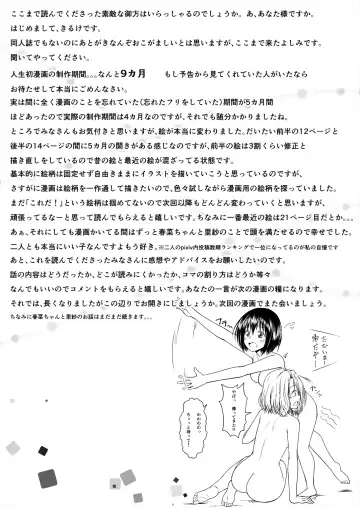 ここまで読んでくださった素敵な御方はいらっしゃるのでしょうか。あ、あなた様ですか。
はじめまして、きるけです。
同人誌でもないのにあとがきなんておこがましいとは思いますが、ここまで来たよしみです。
聞いてやってください。
人生初漫画の制作期間。。。なんと９カ月　もし予告から見てくれていた人がいたなら
お待たせして本当にごめんなさい。
実は間に全く漫画のことを忘れていた（忘れたフリをしていた）期間が５カ月間
ほどあったので実際の制作期間は４カ月なのですが、それでも随分かかりましたね。
ところでみなさんもお気付きと思いますが、絵が本当に変わりました。だいたい前半の12ページと
後半の14ページの間に５カ月の開きがある感じなのですが、前半の絵は３割くらい修正と
描き直しをしているので昔の絵と最近の絵が混ざってる状態です。
基本的に絵柄は固定せず自由きままにイラストを描いていこうと思っているのですが、
さすがに漫画は絵柄を一作通して描きたいので、色々試しながら漫画用の絵柄を探っていました。
まだ「これだ！」という絵柄は掴めてないので次回以降もどんどん変わっていくと思いますが、
頑張ってるなーと思って読んでもらえると嬉しいです。ちなみに一番最近の絵は21ページ目だとか。。。
あぁ、それにしても漫画かいてる間はずっと春菜ちゃんと里紗のことで頭を満たせるので幸せでした。
二人とも本当にいい子なんですよもう好き。※二人のpixiv内投稿数順ランキングで一位になってるのが私の自慢です
あと、これを読んでくださったみなさんに感想やアドバイスをお願いしたいのです。
話の内容はどうだったか、どこが読みにくかったか、コマの割り方はどうか等々
なんでもいいのでコメントをもらえると嬉しいです。あなたの一言が次の漫画の糧になります。
それでは、長くなりましたがこの辺りでお開きにしましょうか。次回の漫画でまた会いましょう。
ちなみに春菜ちゃんと里紗のお話はまだまだ続きます。。。